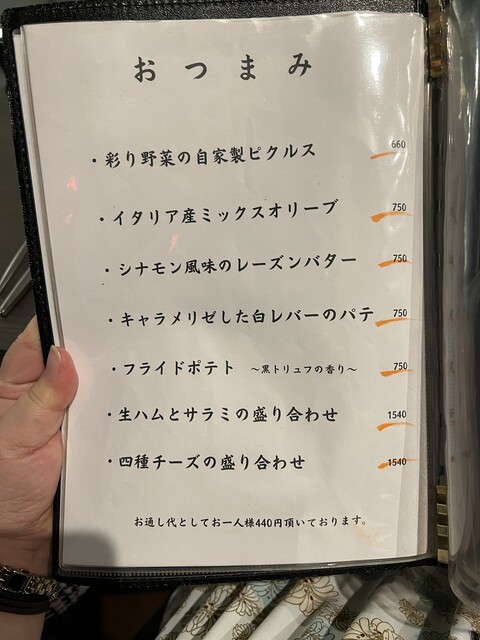 おつまみ
・彩り野菜の自家製ピクルス 660
・イタリア産ミックスオリーブ 750
・シナモン風味のレーズンバター 750
・キャラメリゼした白レバーのパテ 750
・フライドポテト ～黒トリュフの香り～ 750
・生ハムとサラミの盛り合わせ 1540
・四種チーズの盛り合わせ 1540
お通し代としてお一人様440円頂いております。